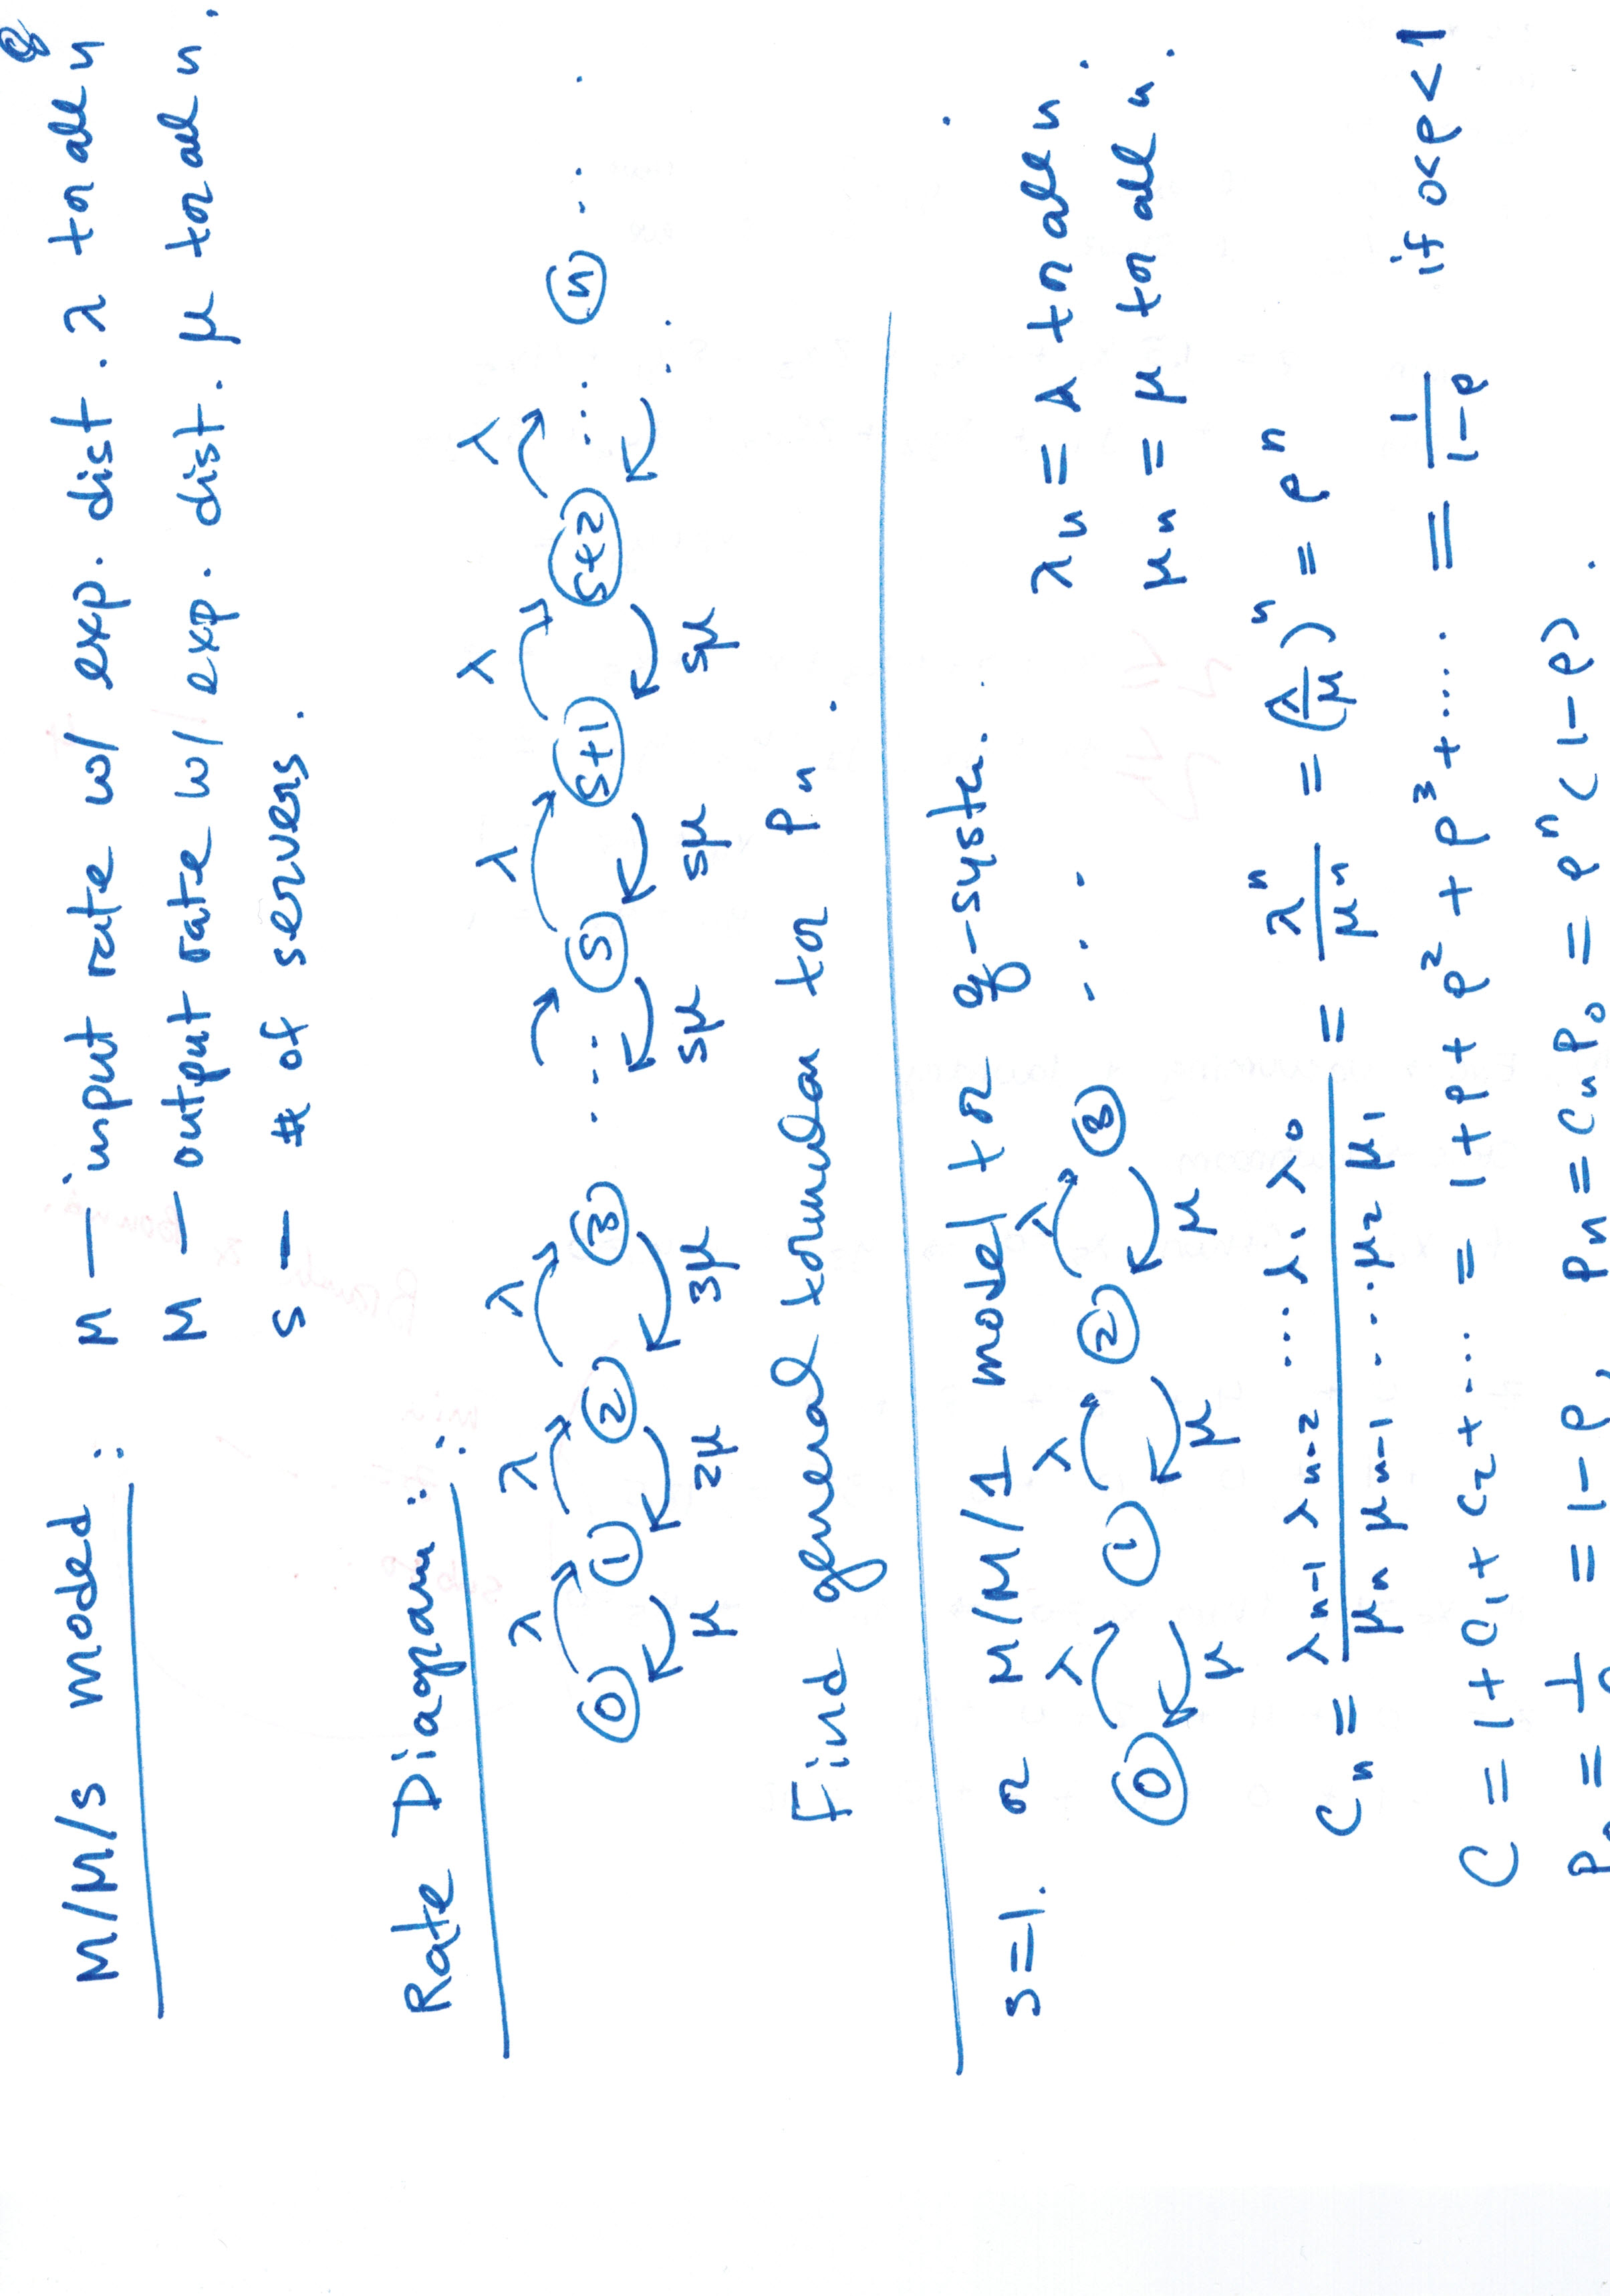 8
M/M/s model :
M — input rate w/ exp. dist. λ for all n
M — output rate w/ exp. dist. μ for all n.
s — # of servers.
Rate Diagram :
λ λ λ λ λ λ
0 1 2 3 .... s s+1 s+2 ... n ...
μ 2μ 3μ sμ sμ sμ
Find general formula for Pn.
s=1. or M/M/1 model for q-system.
λn = λ for all n.
μn = μ for all n.
λ λ λ
0 1 2 3 ...
μ μ μ
Cn = λn-1 λn-2 ... λ1 λ0 / μn μn-1 ... μ2 μ1 = λ^n / μ^n = (λ/μ)^n = ρ^n
C = 1 + C1 + C2 + .... = 1 + ρ + ρ² + ρ³ + .... = 1/(1-ρ) if 0<ρ<1
P0 = 1/C = 1-ρ, Pn = Cn P0 = ρ^n (1-ρ).